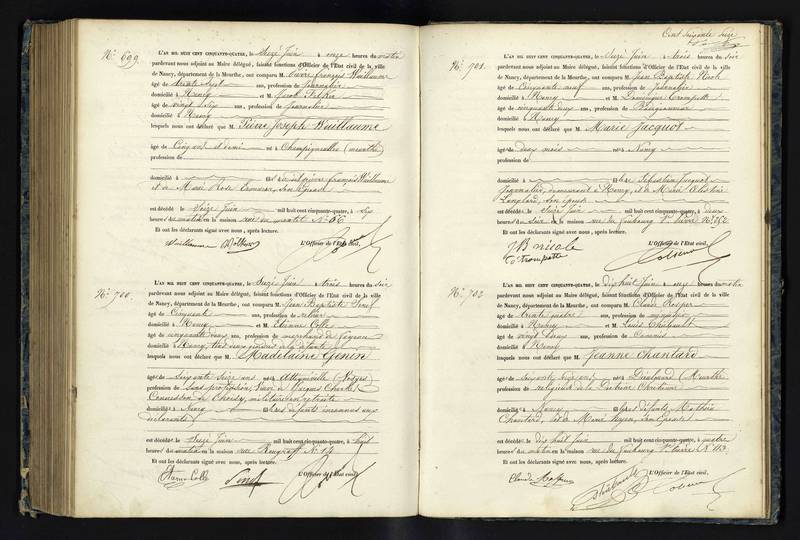 Cent soixante seize
N.º 699
L'AN MIL HUIT CENT CINQUANTE-QUATRE, le Seize Juin à onze heures du matin
pardevant nous adjoint au Maire délégué, faisant fonctions d'Officier de l'État civil de la ville
de Nancy, département de la Meurthe, ont comparu M. Pierre françois Vuillaume
âgé de trente sept ans, profession de journalier
domicilié à Nancy et M. Jacob
âgé de vingt sept ans, profession de journalier
domicilié à Nancy
lesquels nous ont déclaré que M. Pierre Joseph Vuillaume
âgé de Cinq ans et demi né à Champigneulles (meurthe)
profession de
domicilié à fils de pierre françois Vuillaume
et de Marie Rose son épouse
est décédé le Seize Juin mil huit cent cinquante-quatre, à six
heures du matin en la maison rue du N.º 66
Et ont les déclarants signé avec nous, après lecture.
Vuillaume
L'Officier de l'État civil,
N.º 700.
L'AN MIL HUIT CENT CINQUANTE-QUATRE, le Seize Juin à trois heures du soir
pardevant nous adjoint au Maire délégué, faisant fonctions d'Officier de l'État civil de la ville
de Nancy, département de la Meurthe, ont comparu M. Jean Baptiste
âgé de Cinquante ans, profession de relieur
domicilié à Nancy et M. Etienne Colle
âgé de cinquante deux ans, profession de marchand de
domicilié à Nancy, tous deux voisins de la défunte
lesquels nous ont déclaré que M. Madelaine Genin
âgée de soixante seize ans née à Attignéville (Vosges)
profession de Sans profession, Veuve de Jacques Charles
de Choisy, militaire en retraite
domiciliée à Nancy fille de défunts inconnus aux
déclarants
est décédée le Seize Juin mil huit cent cinquante-quatre, à sept
heures du matin en la maison rue N.º 14
Et ont les déclarants signé avec nous, après lecture.
Colle
L'Officier de l'État civil,
N.º 701.
L'AN MIL HUIT CENT CINQUANTE-QUATRE, le Seize Juin à trois heures du soir
pardevant nous adjoint au Maire délégué, faisant fonctions d'Officier de l'État civil de la ville
de Nancy, département de la Meurthe, ont comparu M. Jean Baptiste Nicole
âgé de Cinquante neuf ans, profession de journalier
domicilié à Nancy et M. Dominique Trompette
âgé de cinquante deux ans, profession de
domicilié à Nancy
lesquels nous ont déclaré que M. Marie Jacquot
âgée de deux mois née à Nancy
profession de
domiciliée à fille de Sébastien Jacquot
journalier, demeurant à Nancy, et de Marie
son épouse
est décédée le Seize Juin mil huit cent cinquante-quatre, à deux
heures du soir en la maison rue du faubourg St. Pierre N.º
Et ont les déclarants signé avec nous, après lecture.
JB nicole
D trompette
L'Officier de l'État civil,
N.º 702
L'AN MIL HUIT CENT CINQUANTE-QUATRE, le dix huit Juin à onze heures du matin
pardevant nous adjoint au Maire délégué, faisant fonctions d'Officier de l'État civil de la ville
de Nancy, département de la Meurthe, ont comparu M. Claude
âgé de trente quatre ans, profession de
domicilié à Nancy et M. Louis Thiébault
âgé de vingt deux ans, profession de Commis
domicilié à Nancy
lesquels nous ont déclaré que M. Jeanne Chantard
âgée de soixante ans née à (Meurthe)
profession de religieuse de la Doctrine Chrétienne
domiciliée à Nancy fille de défunts Mathieu
Chantard, et de Marie son épouse
est décédée le dix huit Juin mil huit cent cinquante-quatre, à quatre
heures du matin en la maison rue du faubourg St. Pierre N.º 113
Et ont les déclarants signé avec nous, après lecture.
Claude
Thiébault
L'Officier de l'État civil,